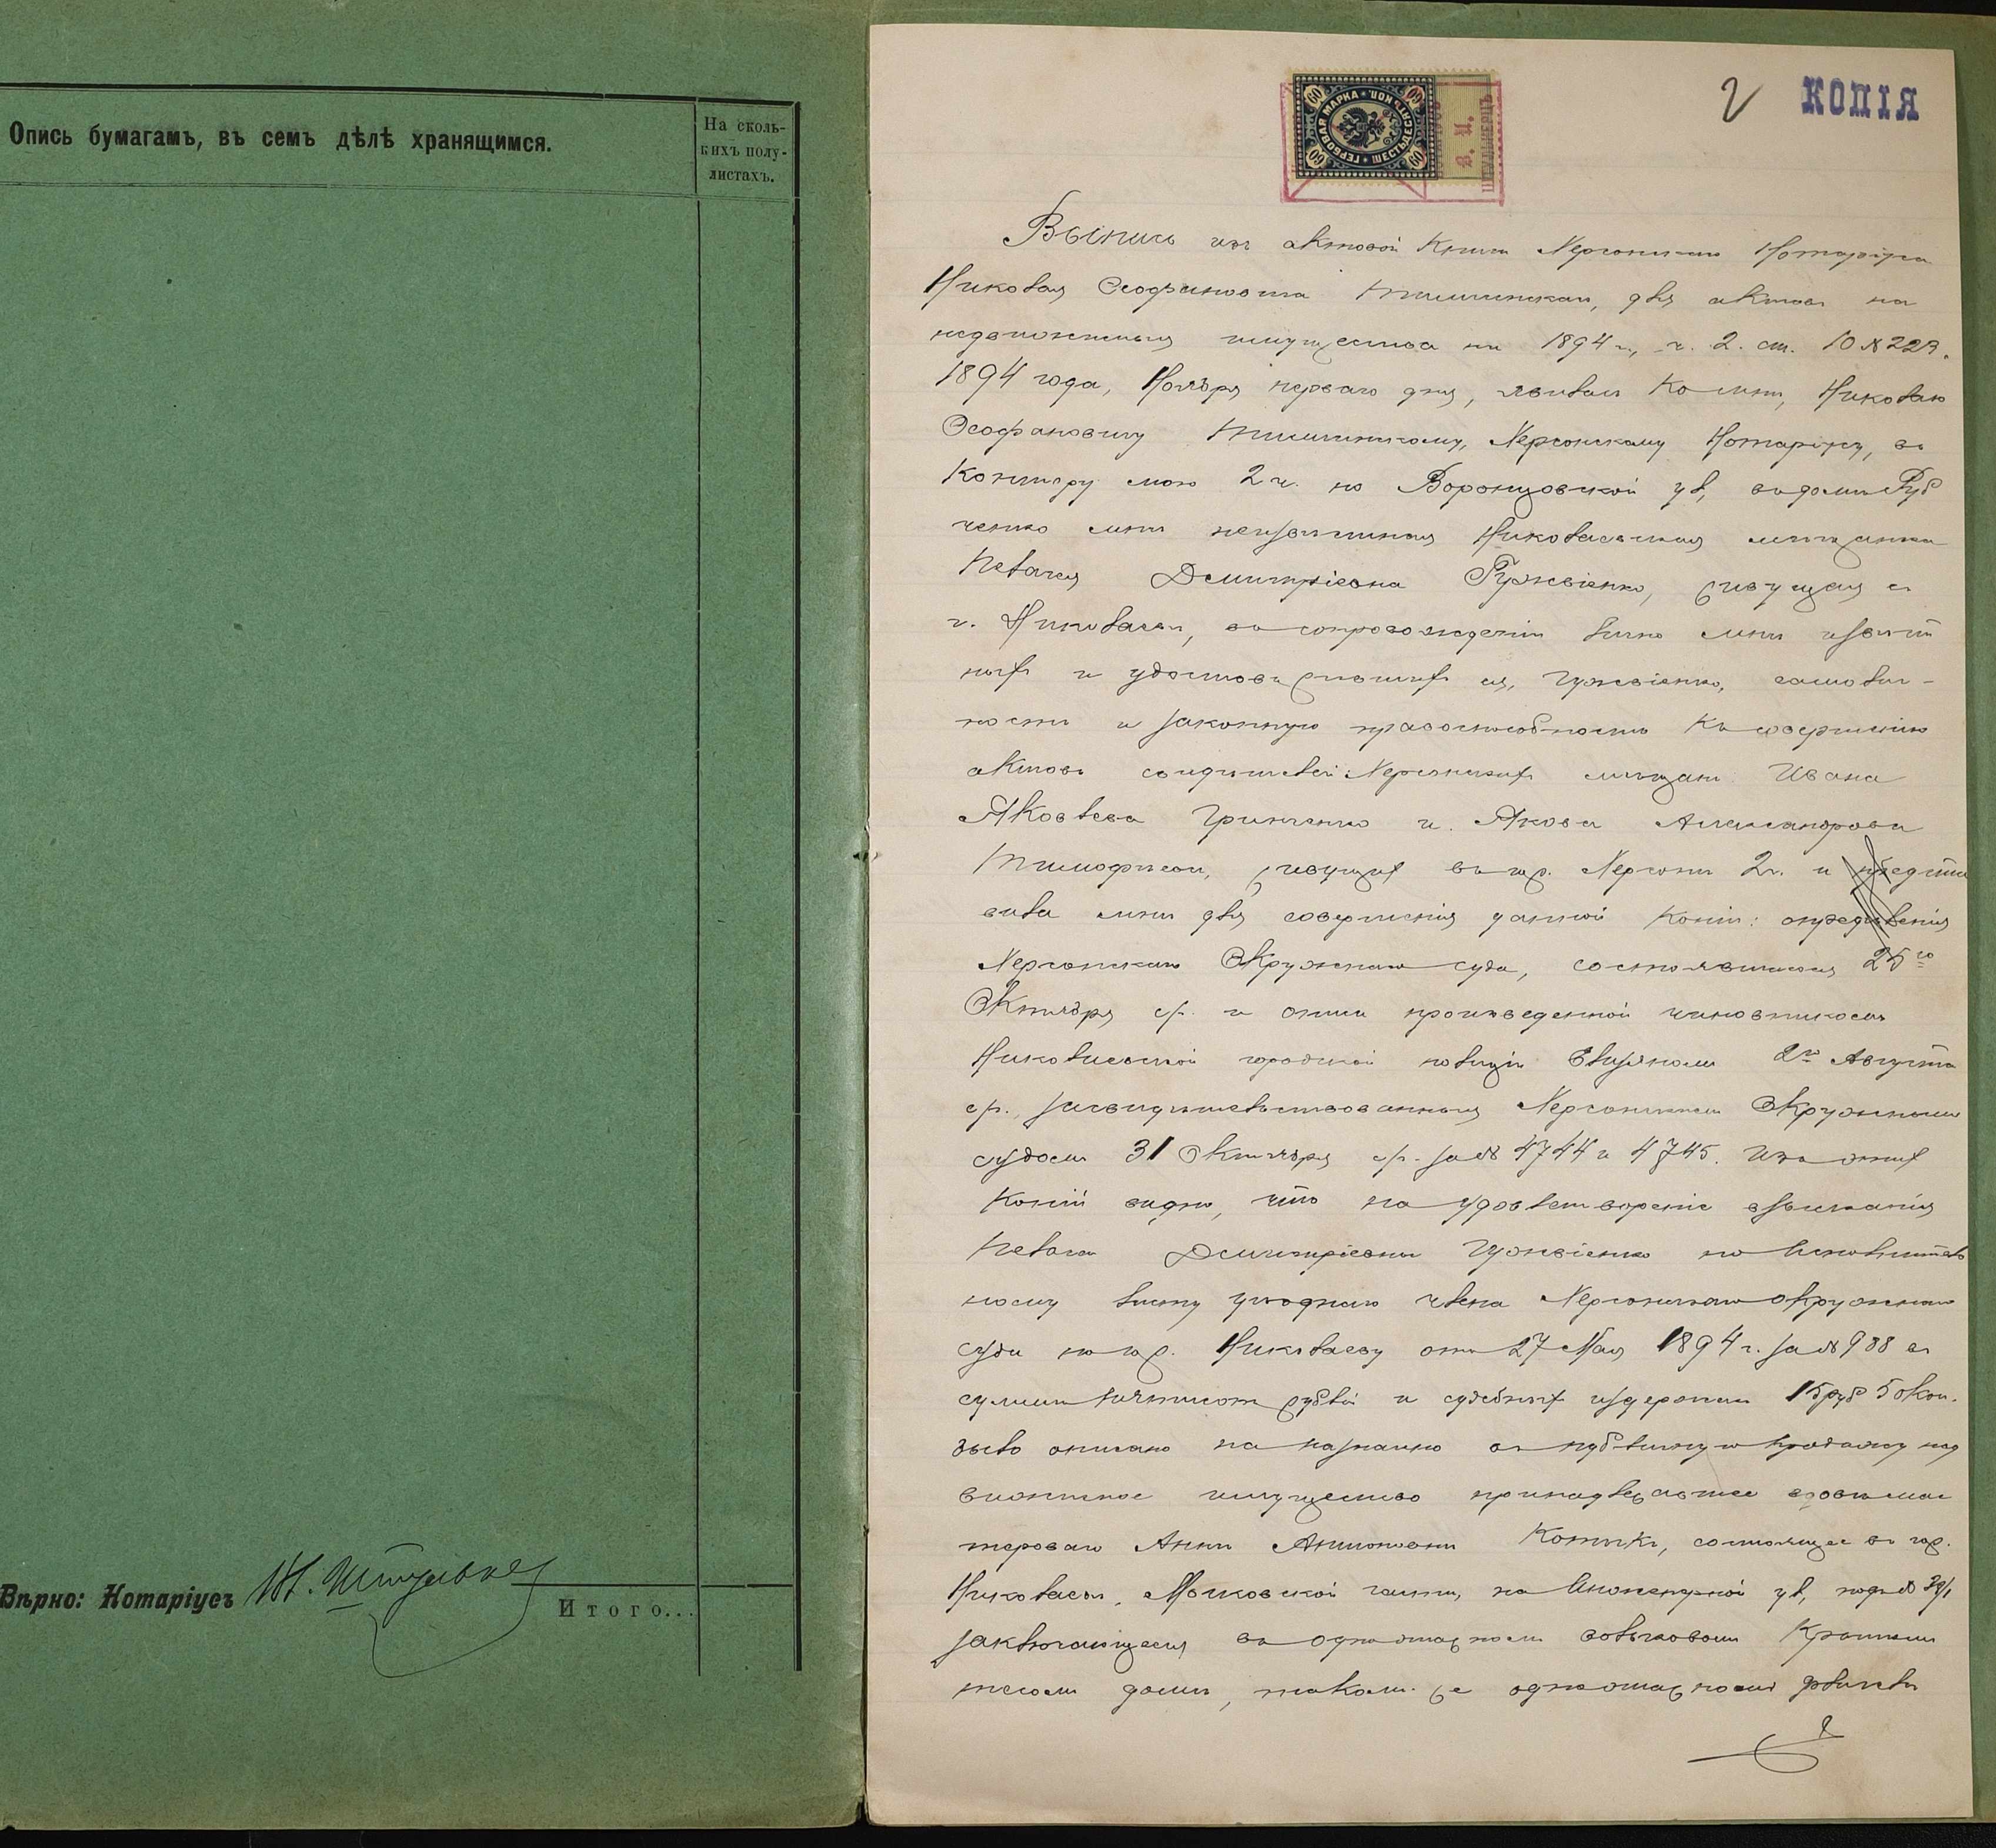 Опись бумагамъ, въ семъ дѣлѣ хранящимся.
На сколь-
кихъ полу-
листахъ.
Вѣрно: Нотаріусъ
Итого...
2 КОПІЯ
ГЕРБОВАЯ МАРКА • ШЕСТЬДЕСЯТЪ КОП.
60 60 60 60
Выпись изъ актовой книги Херсонскаго Нотаріуса
Николая Ѳеофановича для актовъ на
недвижимыя имущества на 1894 г., ч. 2. ст. 10 № 229.
1894 года, Ноября перваго дня, явилась ко мнѣ, Николаю
Ѳеофановичу Херсонскому Нотаріусу, въ
контору мою 2 ч. по Воронцовской ул, въ домѣ Руб
ченко мнѣ неизвѣстная Николаевская мѣщанка
Пелагея Дмитріевна Гужвіенко, живущая въ
г. Николаевѣ, въ сопровожденіи лично мнѣ извѣст
ныхъ и удостовѣрившихъ ея, Гужвіенко, самолич-
ность и законную правоспособность къ совершенію
актовъ свидѣтелей: Херсонскихъ мѣщанъ Ивана
Яковлева Гринченко и Якова Александрова
Тимофѣева, живущихъ въ гор. Херсонѣ 2 ч. и предста
вила мнѣ для совершенія данной копіи: опредѣленія
Херсонскаго Окружнаго суда, состоявшагося 25го
Октября с/г. и описи произведенной чиновникомъ
Николаевской городской полиціи 2го Августа
с/г., засвидѣтельствованныя Херсонскимъ Окружнымъ
судомъ 31 Октября с/г. за № 4744 и 4745. Изъ этихъ
копій видно, что на удовлетвореніе взысканія
Пелагеи Дмитріевны Гужвіенко по исполнитель
ному листу уѣзднаго члена Херсонскаго окружнаго
суда по гор. Николаеву отъ 27 Мая 1894 г. за № 988 въ
суммѣ пятисотъ рублей и судебныхъ издержекъ 15 руб 50 коп.
было описано и назначено въ публичную продажу нед
вижимое имущество принадлежащее вдовѣ мас
тероваго Аннѣ Антоновнѣ состоящее въ гор.
Николаевѣ, Московской части, на Инженерной ул, подъ № 39/1
заключающееся въ одноэтажномъ
домѣ, такомъ же одноэтажномъ флигелѣ